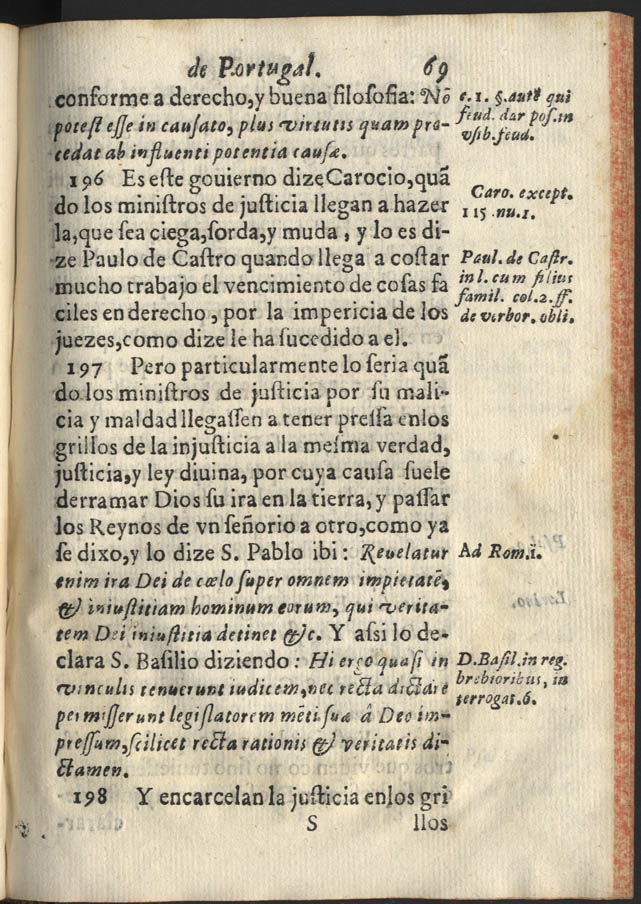 de Portugal. 69
conforme a derecho,y buena filosofia: Nõ
potest esse in causato, plus virtutis quam pro-
cedat ab influenti potentia causæ.
196 Es este gouierno dize Carocio, quã
do los ministros de justicia llegan a hazer
la,que sea ciega,sorda,y muda , y lo es di-
ze Paulo de Castro quando llega a costar
mucho trabajo el vencimiento de cosas fa
ciles en derecho , por la impericia de los
juezes,como dize le ha sucedido a el.
197 Pero particularmente lo seria quã
do los ministros de justicia por su mali-
cia y maldad llegassen a tener pressa enlos
grillos de la injusticia a la mesma verdad,
justicia,y ley diuina, por cuya causa suele
derramar Dios su ira en la tierra, y passar
los Reynos de vn señorio a otro,como ya
se dixo,y lo dize S. Pablo ibi: Reuelatur
enim ira Dei de cœlo super omnem impietatẽ,
& iniustitiam hominum eorum, qui verita-
tem Dei iniustitia detinet &c. Y assi lo de-
clara S. Basilio diziendo: Hi ergo quasi in
vinculis tenuerunt iudicem,nec recta dictare
permisserunt legislatorem mẽti suæ â Deo im-
pressum,scilicet recta rationis & veritatis di-
ctamen.
198 Y encarcelan la justicia enlos gri
S llos
c. 1. §. qui
feud. dar pos. in
vsib. feud.
Caro. except.
115 .nu.1.
Paul. de Castr.
in l. cum filius
famil. col.2. ff.
de verbor. obli.
Ad Rom.ï.
D.Basil.in reg.
brebioribus, in
terrogat.6.